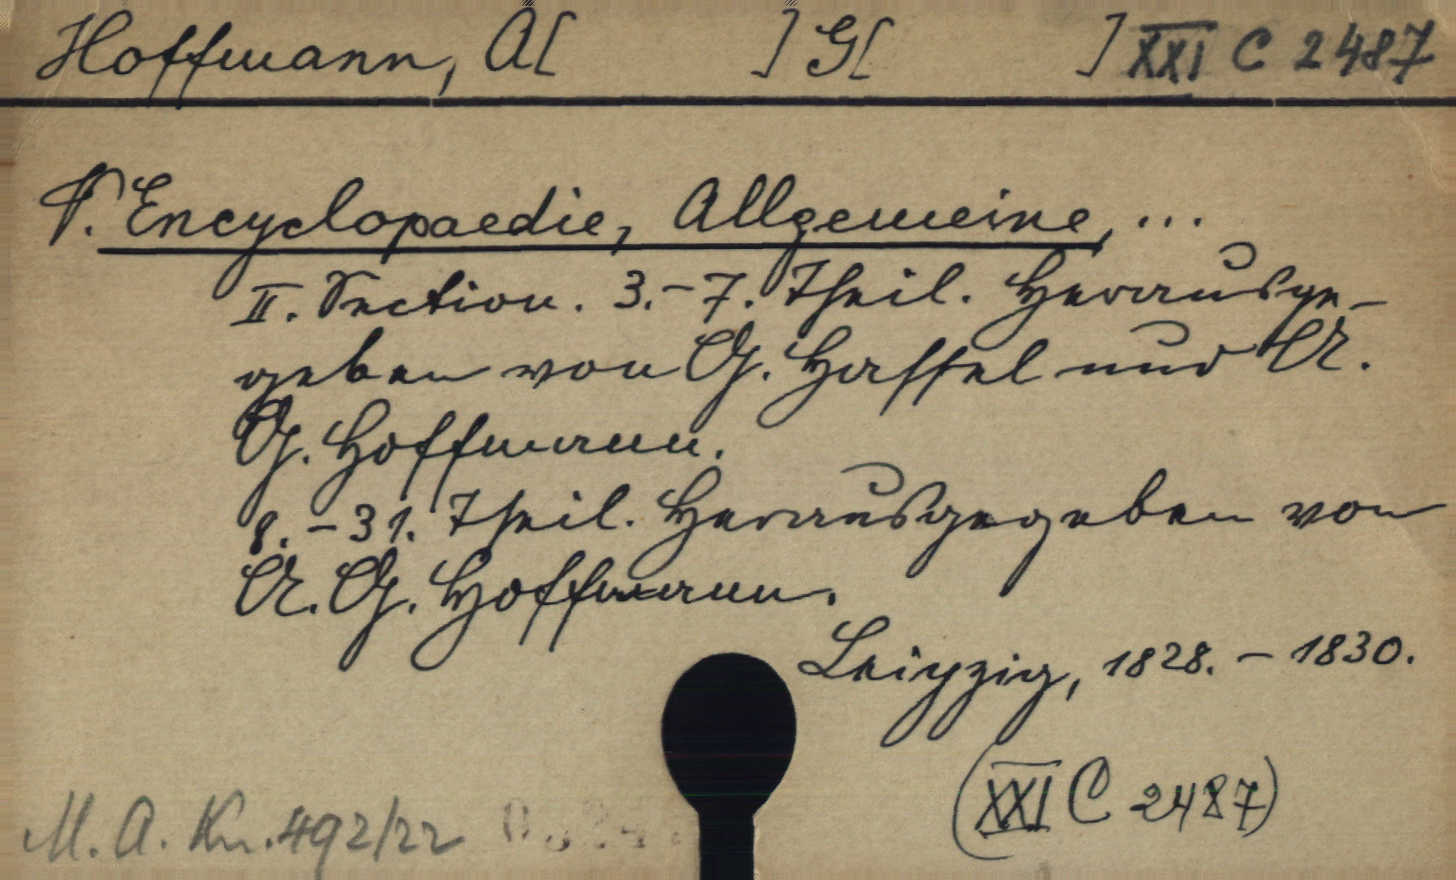 Hoffmann, A[ ] G[ ] XXI C 2487
V. Encyclopaedie, Allgemeine, ...
II. Section. 3.-7. Theil. Herausge-
geben von G. Hassel und A.
G. Hoffmann.
8.-31. Theil. Herausgegeben von
A. G. Hoffmann.
Leipzig, 1828.-1830.
(XXI C 2487)
M. A. Kn. 492/22